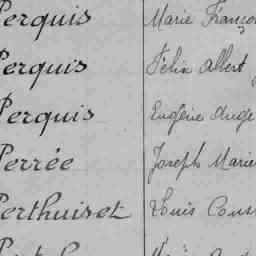 Perquis Marie Franço
Perquis Félix Albert
Perquis Eugène Ange
Perrée Joseph Marie
Perthuiset Louis Cons